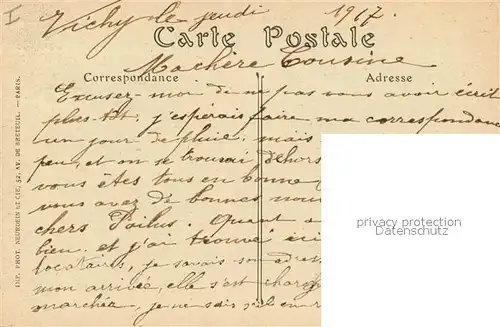 I
Vichy le jeudi 1917
Carte Postale
Ma chère Cousine
Correspondance Adresse
Excusez-moi de ne pas vous avoir écrit
plus tôt. j'espérais faire ma correspondance
un jour de pluie. mais
peu, et on se trouvai dehors
vous êtes tous en bonne
vous avez de bonnes nouv
chers Poilus. Quant a
bien. et j'ai trouvé ici
locataires, je savais son adres
mon arrivée, elle s'est charg
marchés, je ne sais s'il en r
IMP. PHOT. NEURDEIN ET CIE, 52, AV. DE BRETEUIL. — PARIS.
personenbezogene Daten
Datenschutz